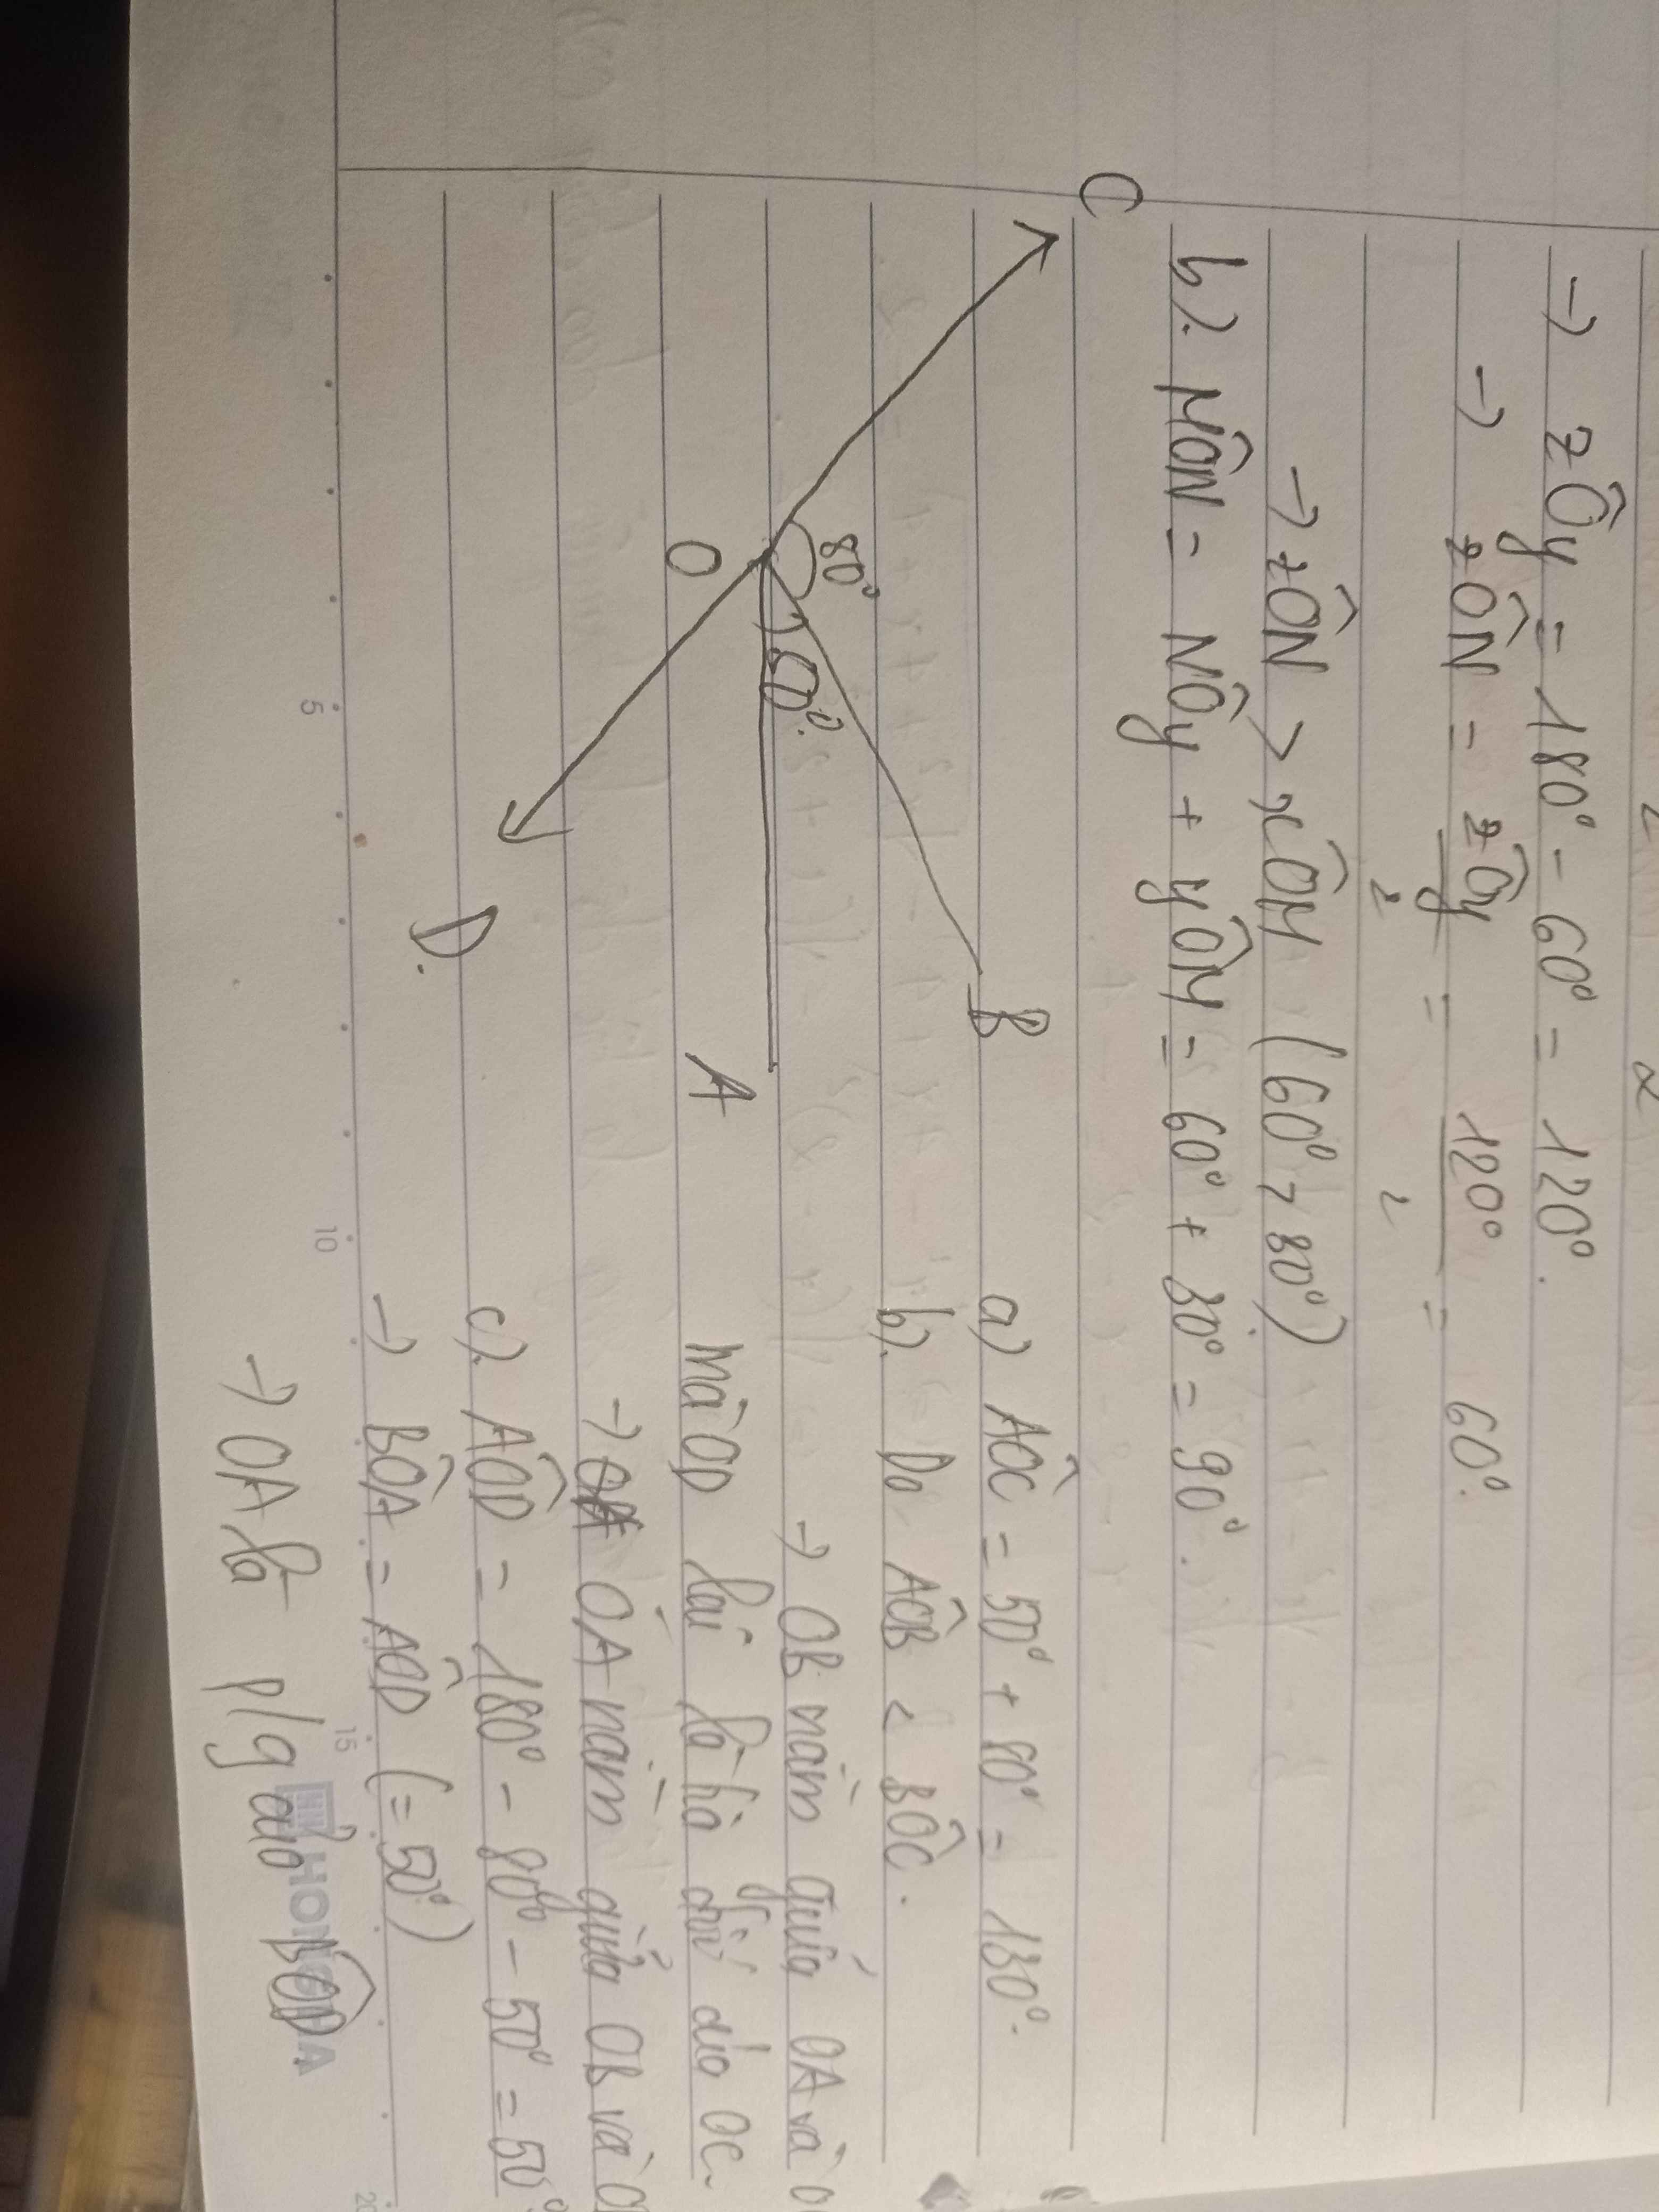 → zÔy = 180° - 60° = 120°.
→ zÔN = zÔy / 2 = 120° / 2 = 60°.
→ zÔN > xÔM (60° > 30°)
b). MÔN = NÔy + yÔM = 60° + 30° = 90°.
C
B
80°
50°.
O
A
D.
a) AÔC = 50° + 80° = 130°.
b). Do AÔB < BÔC.
→ OB nằm giữa OA và
mà OD lại là tia đối của OC.
→ OA nằm giữa OB và
c). AÔD = 180° - 80° - 50° = 50°
→ BÔA = AÔD (= 50°)
→ OA là p/g của BÔD
5
10
15
20
HONG HA